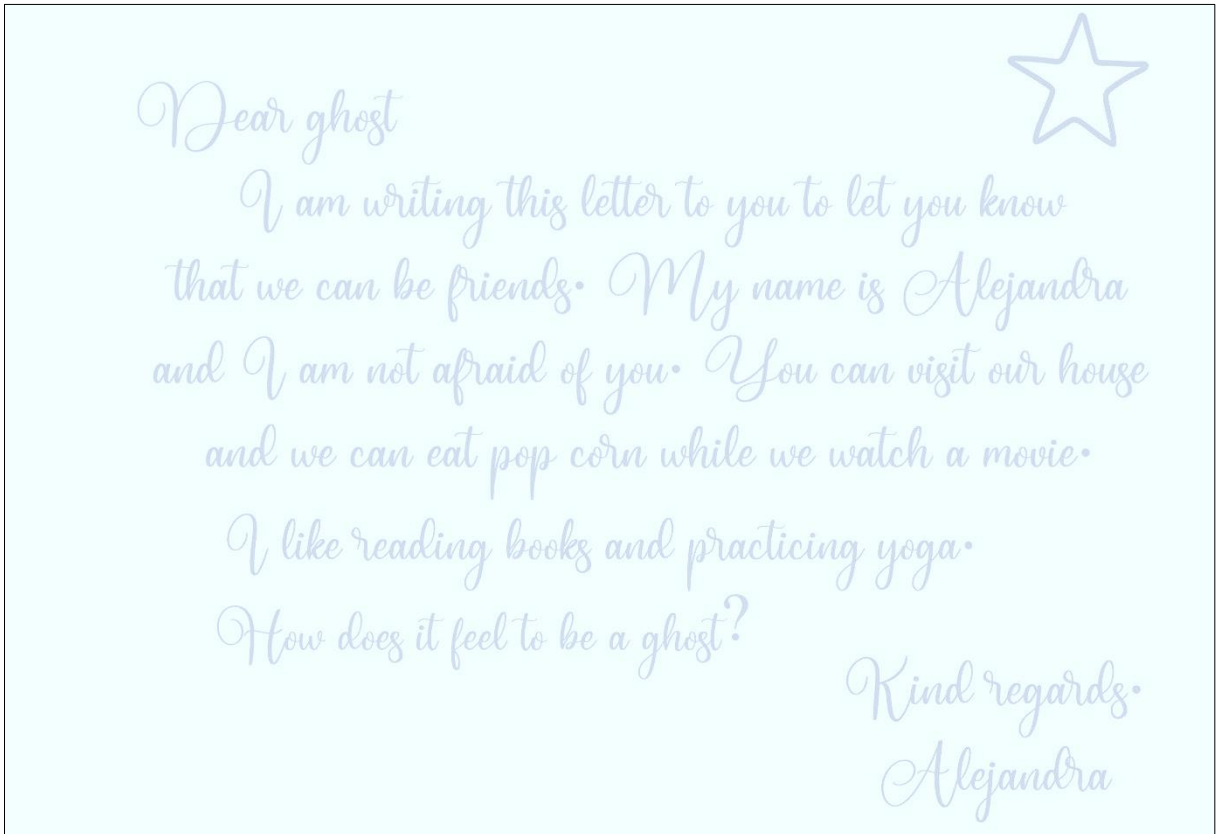 Dear ghost
I am writing this letter to you to let you know
that we can be friends. My name is Alejandra
and I am not afraid of you. You can visit our house
and we can eat pop corn while we watch a movie.
I like reading books and practicing yoga.
How does it feel to be a ghost?
Kind regards.
Alejandra